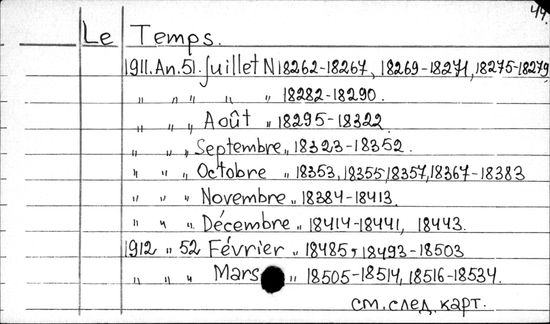 44.
Le Temps.
1911. An. 51. Juillet N 18262-18267, 18269-18271, 18275-18279
" " " " " 18282-18290.
" " " Août " 18295-18322
" " " Septembre " 18323-18352.
" " " Octobre " 18353, 18355, 18357, 18367-18383
" " " Novembre " 18384-18413.
" " " Décembre " 18414-18441, 18443.
1912 " 52 Février " 18485, 18493-18503
" " " Mars " 18505-18514, 18516-18534.
см. след. карт.